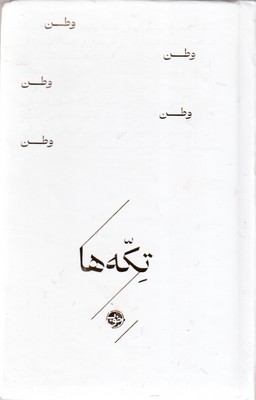 وطن
وطن
وطن
وطن
وطن
تکّه‌ها